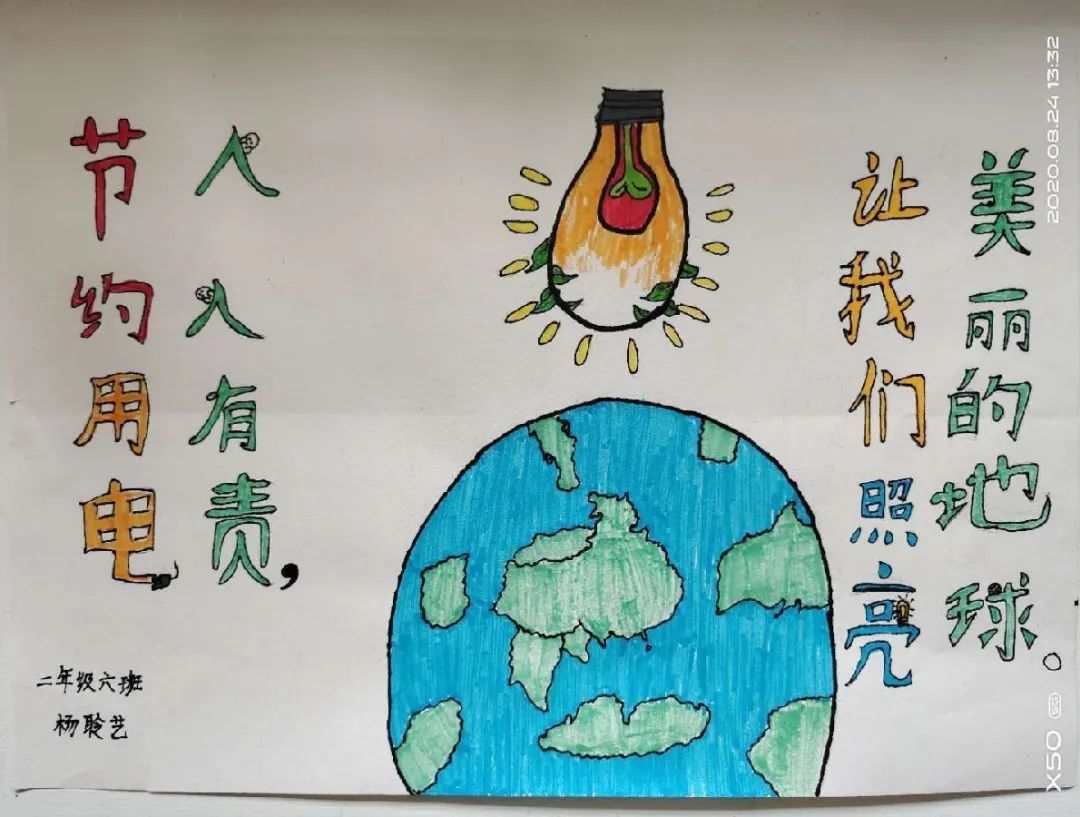 节约用电
人人有责，
让我们照亮
美丽的地球。
二年级六班
杨聆艺
2020.08.24 13:32
X50 5G